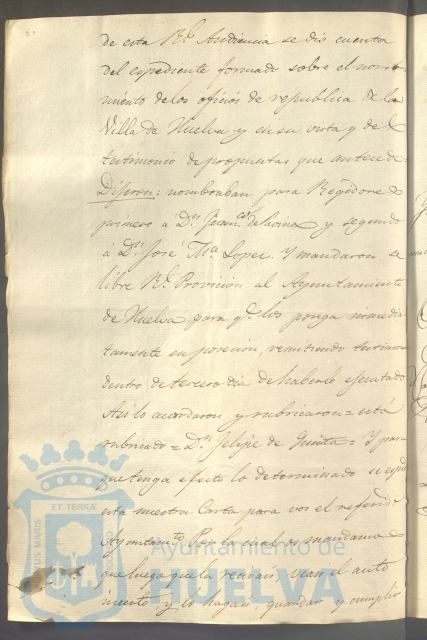 de esta Rl. Audiencia se dio cuenta
del expediente formado sobre el nombra
miento de los oficios de republica de la
Villa de Huelva y en su vista y del
testimonio de propuestas que antecede
Dijeron: nombraban para Regidores
primero a Dn. Franco. de la y segundo
á Dn. José Ma. Lopez. Y mandaron se
libre Rl. Provision al Ayuntamiento
de Huelva para qe. los ponga inmedia
tamente en posesion, remitiendo testimonio
dentro de tercero dia de haberlo ejecutado
Asi lo acordaron y rubricaron = está
rubricado = Dn. Felipe de = Y para
que tenga efecto lo determinado se espide
esta nuestra Carta para vos el referido
Ayuntamto. Por la cual os mandamos
que luego que la veais el auto
inserto, y lo hagan, guardar y cumplir
ET TERRÆ
PORTUS MARIS
CUSTODIA
Ayuntamiento de
HUELVA